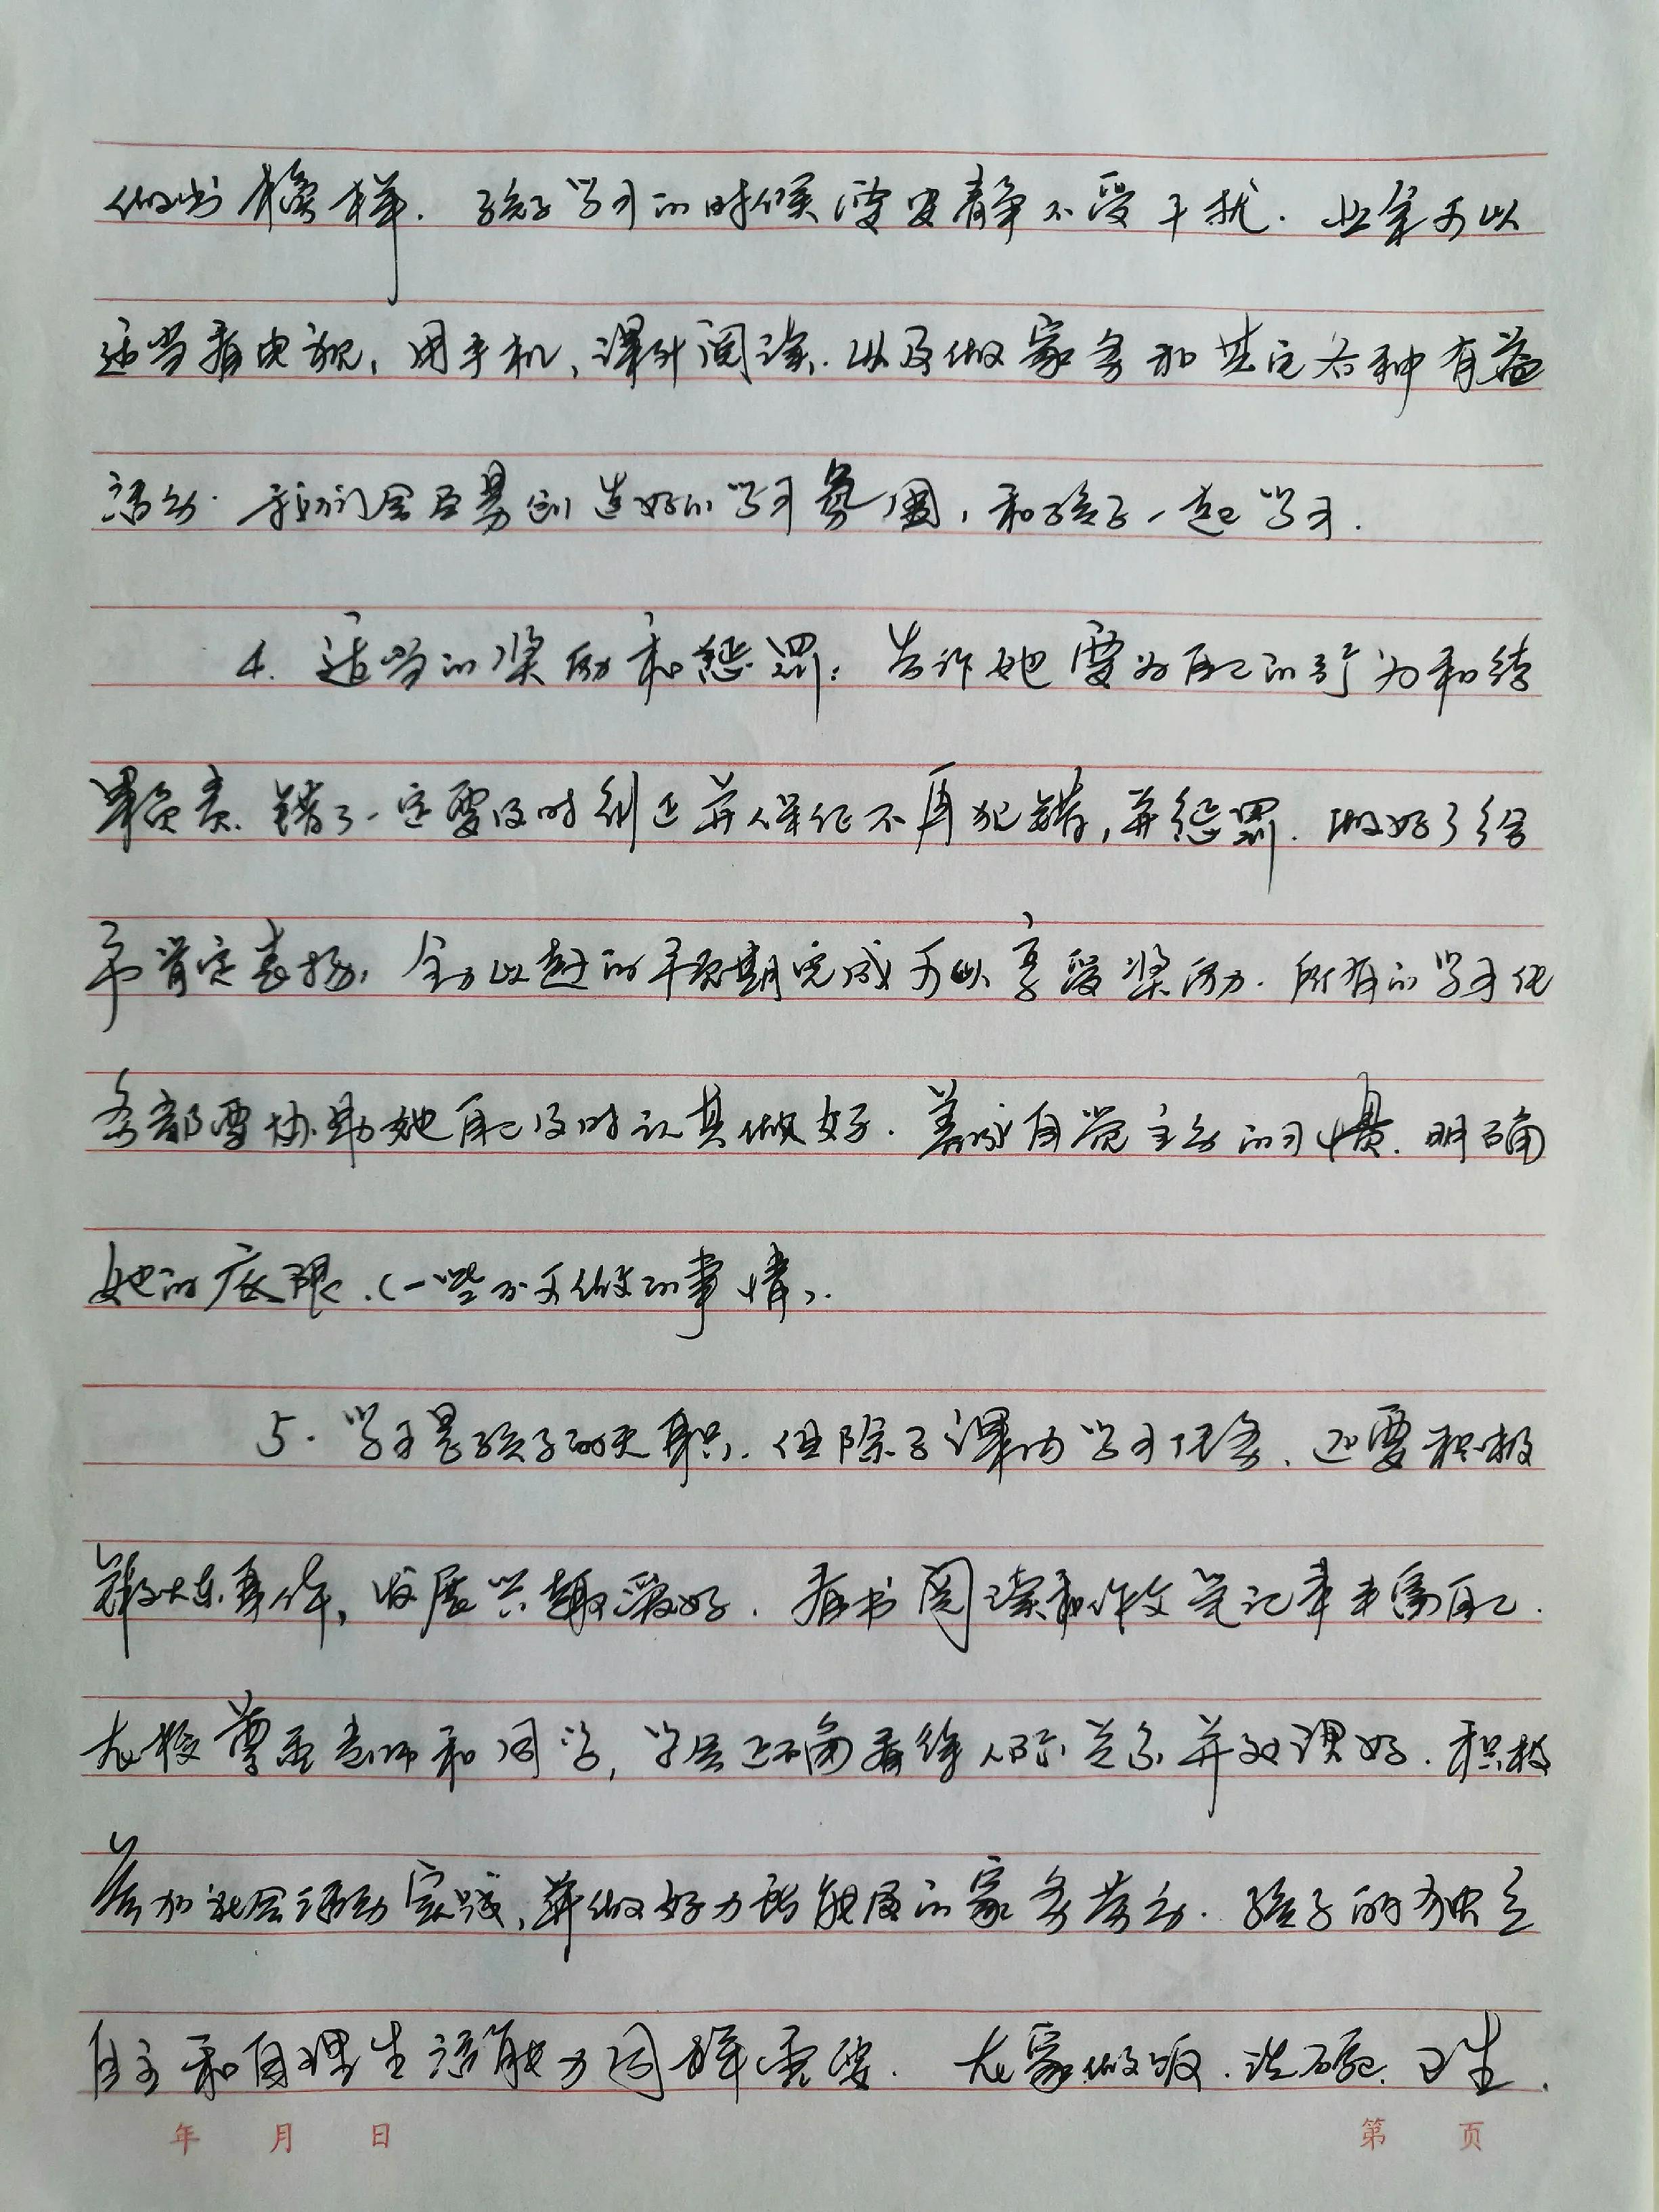 做出榜样. 孩子学习的时候需要安静不受干扰. 业余可以
适当看电视, 用手机, 课外阅读. 以及做家务和其它各种有益
活动. 我们会尽量创造好的学习氛围, 和孩子一起学习.
4. 适当的奖励和惩罚: 告诉她要为自己的行为和结
果负责. 错了一定要及时纠正并保证不再犯错, 并惩罚. 做好了给
予肯定表扬, 全力以赴的早预期完成可以享受奖励. 所有的学习任
务都要协助她自己及时认真做好. 养成自觉主动的习惯. 明确
她的底限. (一些不可做的事情).
5. 学习是孩子的天职. 但除了课内学习任务, 还要积极
锻炼身体, 发展兴趣爱好. 看书阅读和作文笔记丰富自己.
在校尊重老师和同学, 学会正确看待人际关系并处理好. 积极
参加社会活动实践, 并做好力所能及的家务劳动. 孩子的独立
自主和自理生活能力同样重要. 在家做饭. 洗碗. 卫生.
年 月 日 第 页